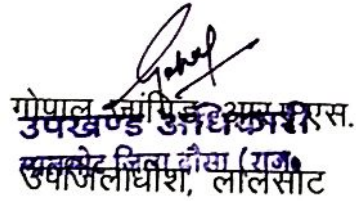 गोपाल जांगिड़ आर.ए.एस.
उपखण्ड अधिकारी
लालसोट जिला दौसा (राज०
उपजिलाधीश, लालसोट